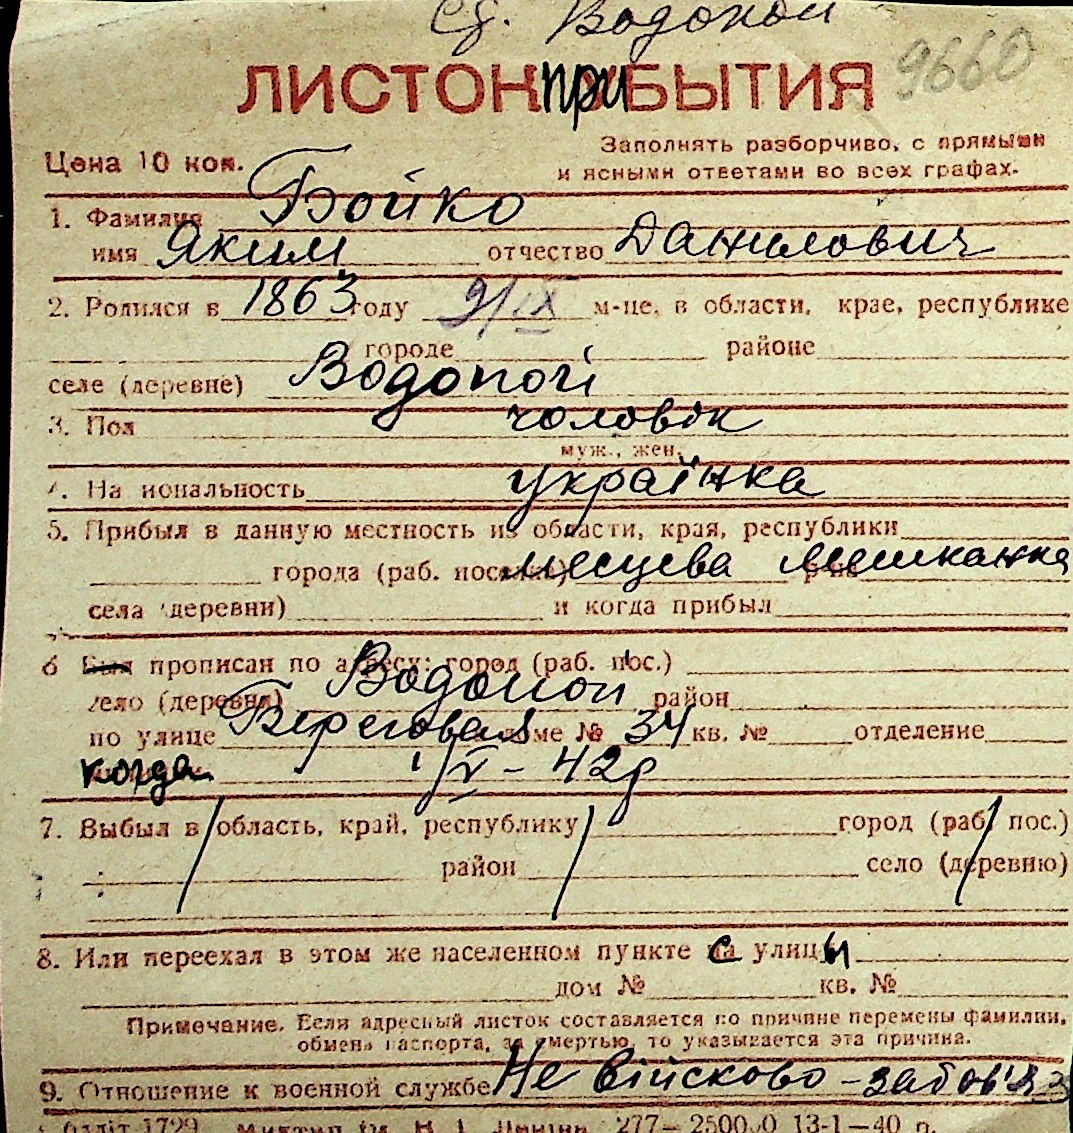 Сд. Водопой
ЛИСТОК приБЫТИЯ 9660
Цена 10 коп. Заполнять разборчиво, с прямыми
и ясными ответами во всех графах.
1. Фамилия Бойко
имя Яким отчество Данилович
2. Родился в 1863 году 9/IX м-це, в области, крае, республике
городе районе
селе (деревне) Водопой
3. Пол чоловік
муж., жен.
4. Национальность українка
5. Прибыл в данную местность из области, края, республики
города (раб. поселка) месцева мешканка
села (деревни) и когда прибыл
6 Был прописан по адресу: город (раб. пос.)
село (деревня) Водопой район
по улице Береговая доме № 34 кв. № отделение
когда 1/V - 42р
7. Выбыл в область, край, республику город (раб. пос.)
район село (деревню)
8. Или переехал в этом же населенном пункте с улицы
дом № кв. №
Примечание. Если адресный листок составляется по причине перемены фамилии,
обмена паспорта, за смертью, то указывается эта причина.
9. Отношение к военной службе Не військово-забов'яз
Облліт 1729. 277— 250000 13-1—40 п.